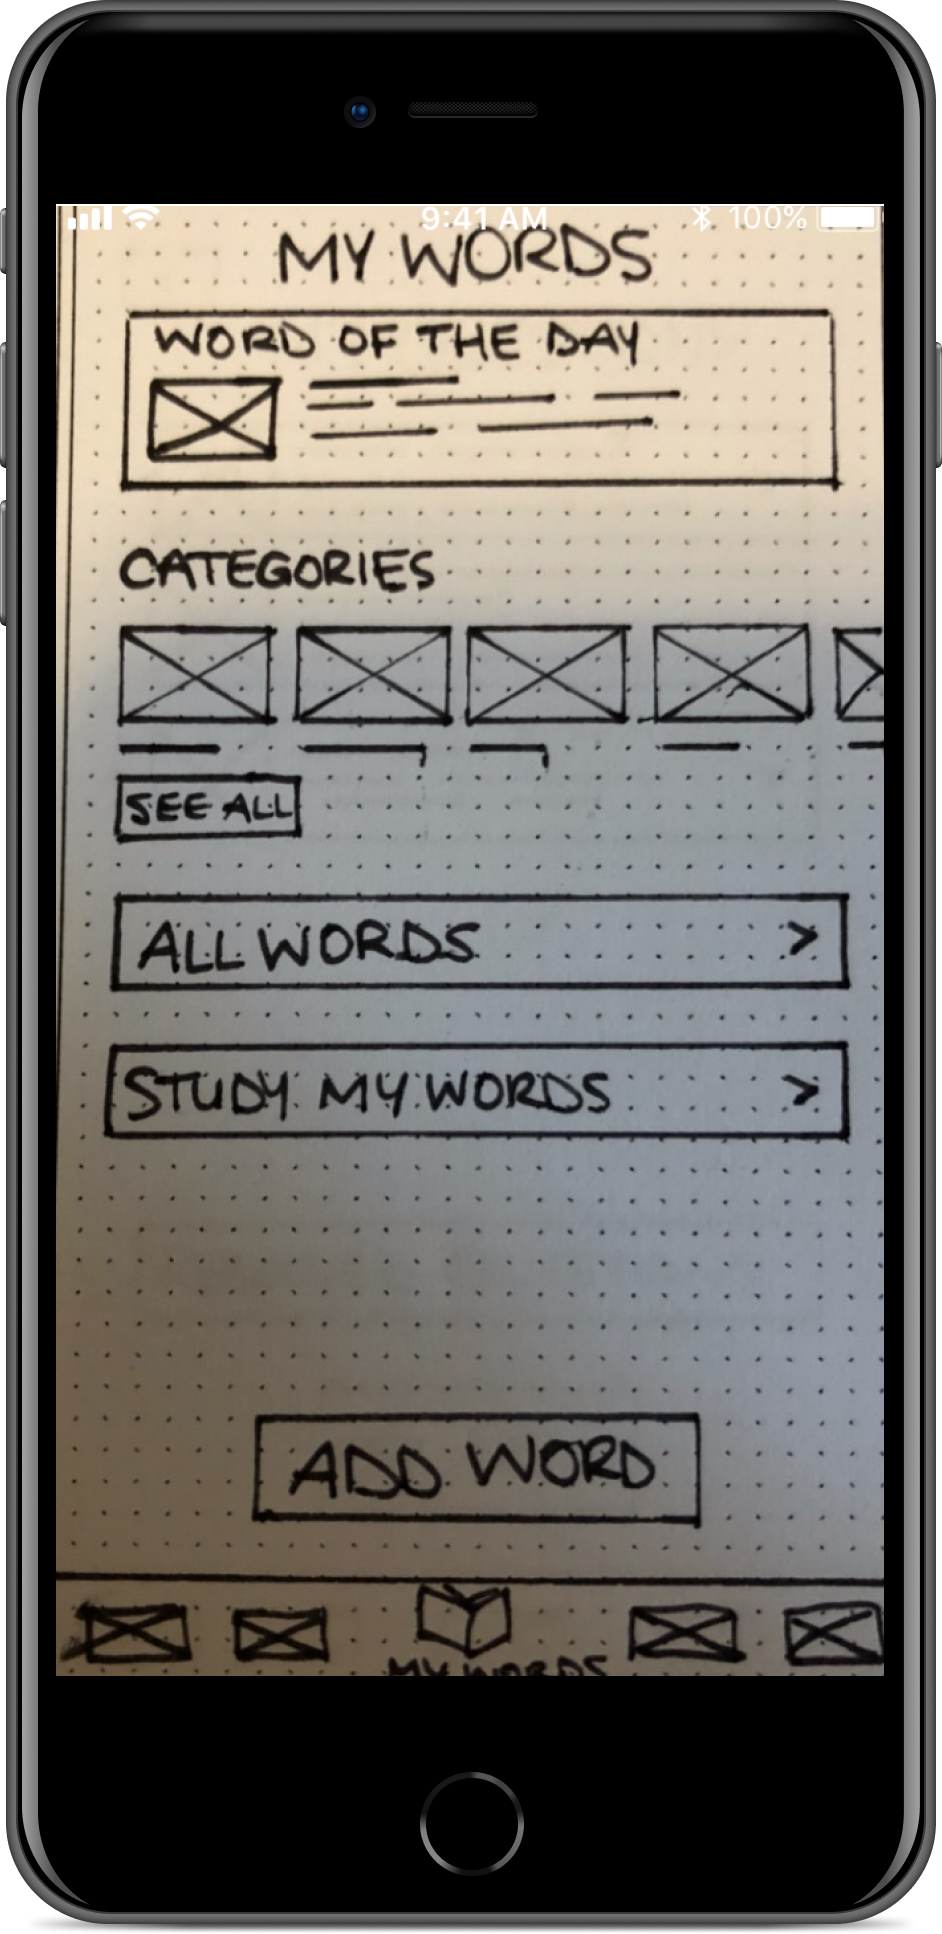 9:41 AM 100%
MY WORDS
WORD OF THE DAY
CATEGORIES
SEE ALL
ALL WORDS >
STUDY MY WORDS >
ADD WORD
MY WORDS